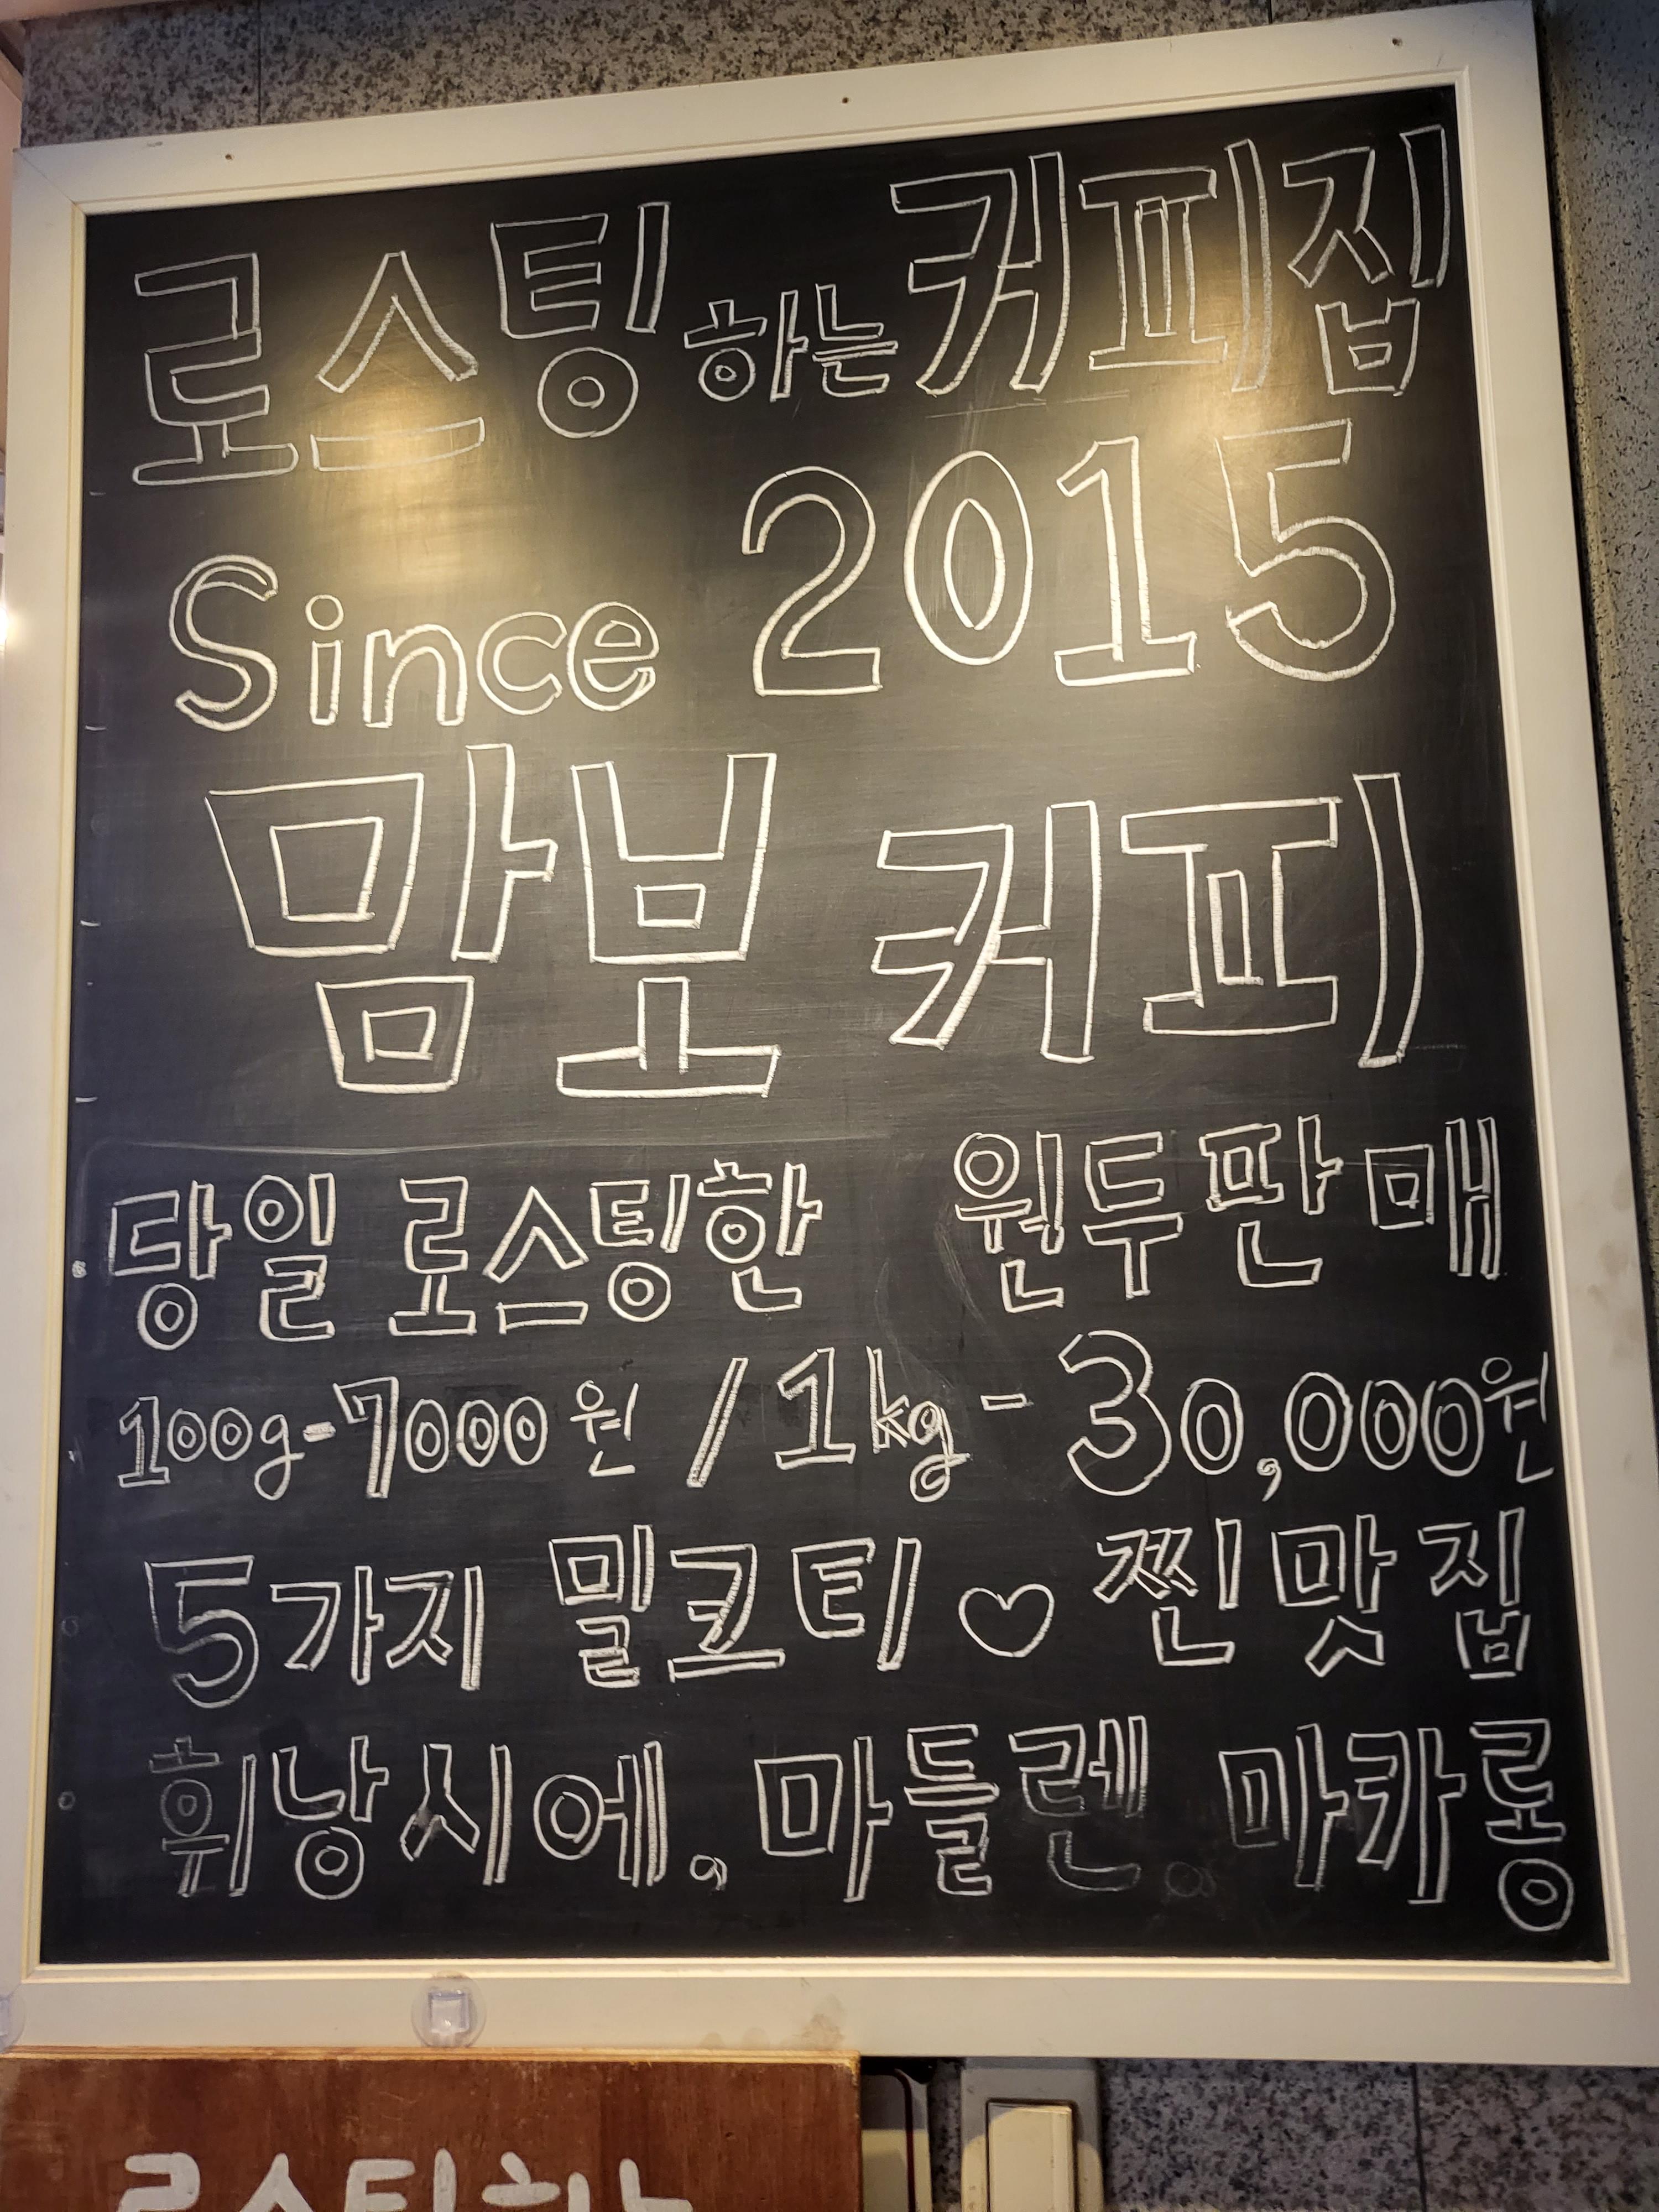 로스팅하는 커피집
Since 2015
맘보 커피
당일 로스팅한 원두판매
100g-7000원 / 1kg - 30,000원
5가지 밀크티 ♡ 찐 맛집
휘낭시에. 마들렌. 마카롱
로스팅하는